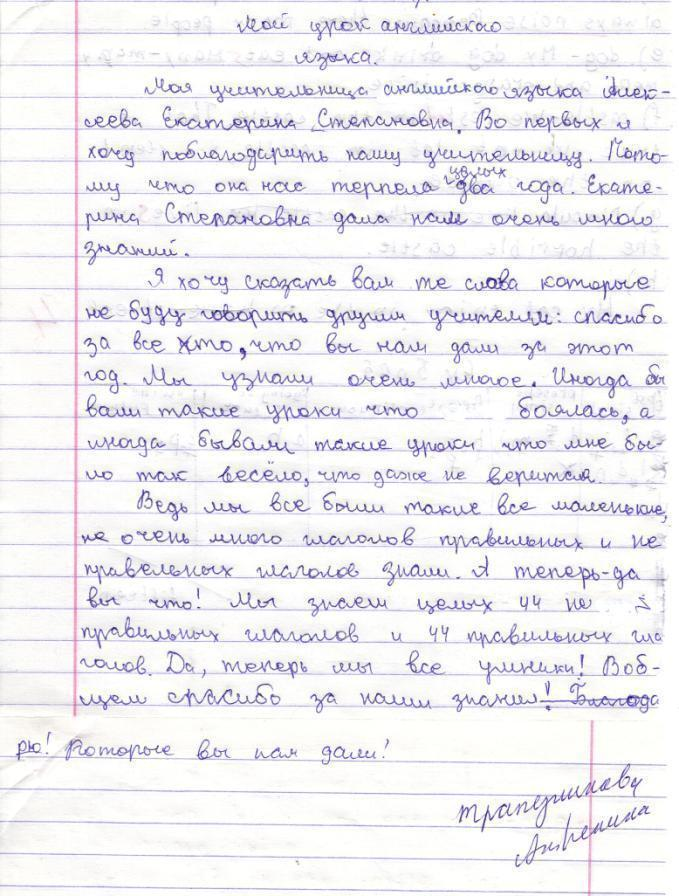 Мой урок английского
языка.
Моя учительница английского языка Алек-
сеева Екатерина Степановна. Во первых я
хочу поблагодарить нашу учительницу. Пото-
му что она нас терпела целых два года. Екате-
рина Степановна дала нам очень много
знаний.
Я хочу сказать вам те слова которые
не буду говорить другим учителям: спасибо
за все то, что вы нам дали за этот
год. Мы узнали очень многое. Иногда бы
вали такие уроки что боялась, а
иногда бывали такие уроки что мне бы-
ло так весёло, что даже не верится.
Ведь мы все были такие все маленькие,
не очень много глаголов правильных и не
правельных глаголов знали. А теперь-да
вы что! Мы знаем целых 44 не
правильных глаголов и 44 правильных гла
голов. Да, теперь мы все умники! Вооб-
щем спасибо за наши знания! Благода
рю! Которые вы нам дали!